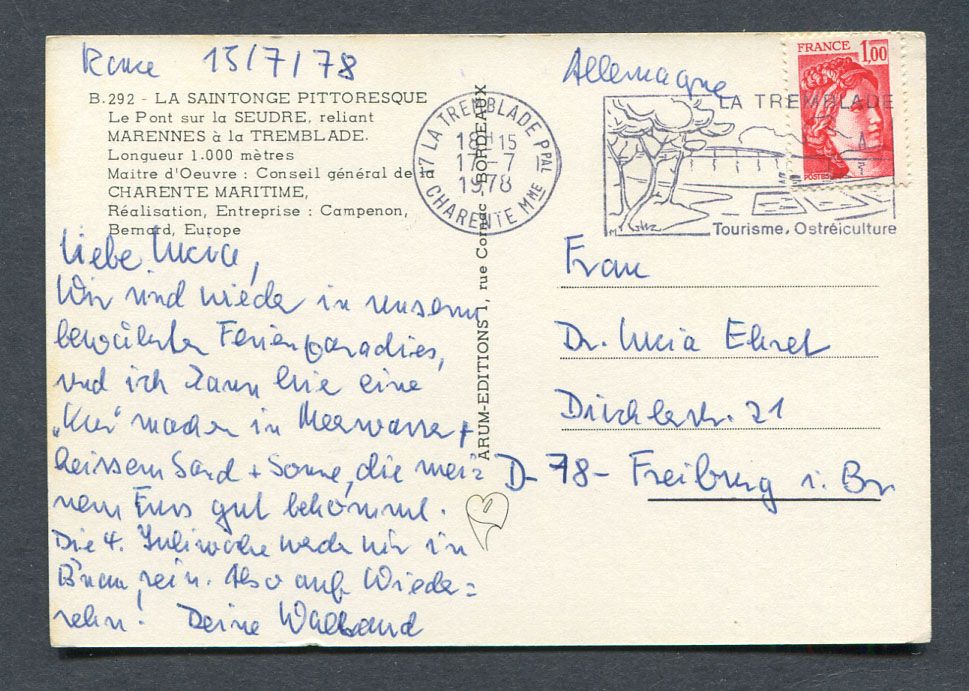 15/7/78
Allemagne
B.292 - LA SAINTONGE PITTORESQUE
Le Pont sur la SEUDRE, reliant
MARENNES à la TREMBLADE.
Longueur 1.000 mètres
Maitre d'Oeuvre : Conseil général de la
CHARENTE MARITIME,
Réalisation, Entreprise : Campenon,
Bernard, Europe
17 LA TREMBLADE PPAL
18H15
17-7
1978
CHARENTE MME
FRANCE 1,00
POSTES
LA TREMBLADE
Tourisme. Ostréiculture
ARUM-EDITIONS 1, rue Cornac BORDEAUX
Liebe Lucia,
Wir sind wieder in unserm
bewährten Ferienparadies,
und ich kann hier eine
"Kur" machen in Meerwasser +
heissem Sand + Sonne, die mei=
nem Fuss gut bekommt.
Die 4. Juliwoche werden wir in
sein. Also auf Wieder=
sehn! Deine
Frau
Dr. Lucia Ehret
21
D-78- Freiburg i. Br